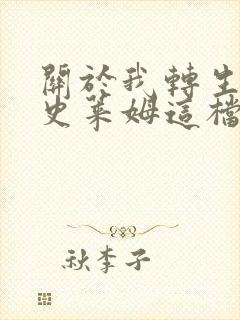 關於我轉生
史萊姆這檔
秋李子